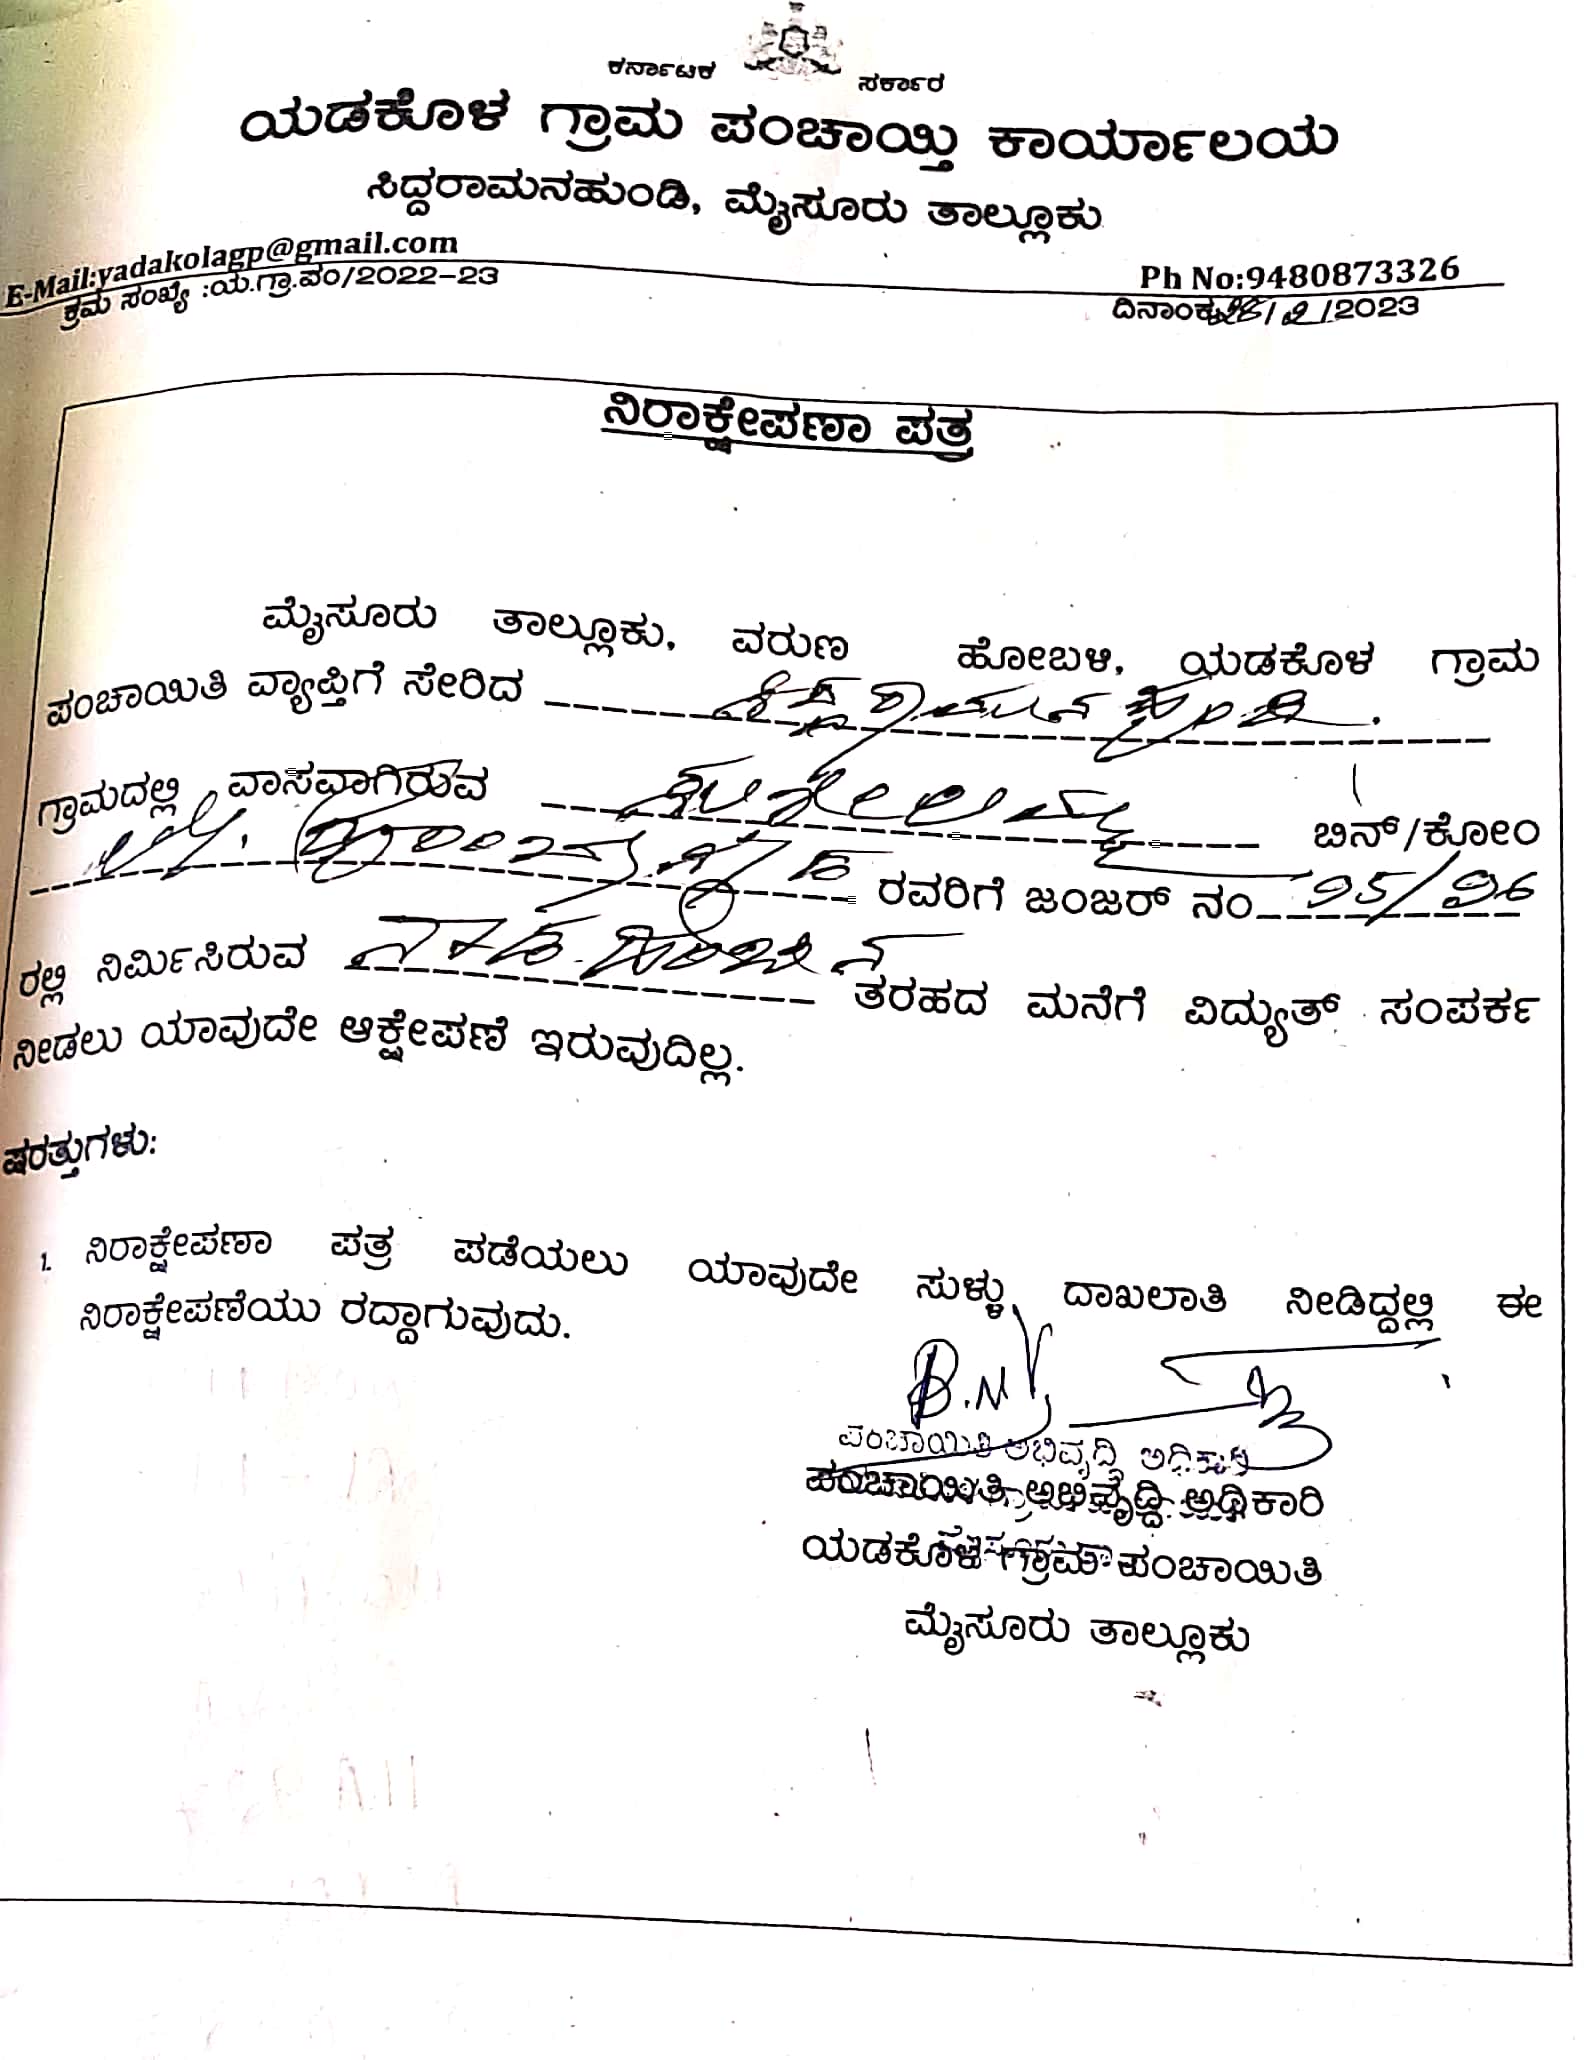 ಕರ್ನಾಟಕ ಸರ್ಕಾರ
ಯಡಕೊಳ ಗ್ರಾಮ ಪಂಚಾಯ್ತಿ ಕಾರ್ಯಾಲಯ
ಸಿದ್ದರಾಮನಹುಂಡಿ, ಮೈಸೂರು ತಾಲ್ಲೂಕು
E-Mail:yadakolagp@gmail.com Ph No:9480873326
ಕ್ರಮ ಸಂಖ್ಯೆ :ಯ.ಗ್ರಾ.ಪಂ/2022-23 ದಿನಾಂಕ /2/2023
ನಿರಾಕ್ಷೇಪಣಾ ಪತ್ರ
ಮೈಸೂರು ತಾಲ್ಲೂಕು, ವರುಣ ಹೋಬಳಿ, ಯಡಕೊಳ ಗ್ರಾಮ
ಪಂಚಾಯಿತಿ ವ್ಯಾಪ್ತಿಗೆ ಸೇರಿದ ಸಿದ್ದರಾಮನಹುಂಡಿ.
ಗ್ರಾಮದಲ್ಲಿ ವಾಸವಾಗಿರುವ ಸುಶೀಲಮ್ಮ ಬಿನ್/ಕೋಂ
ರವರಿಗೆ ಜಂಜರ್ ನಂ 95/96
ರಲ್ಲಿ ನಿರ್ಮಿಸಿರುವ ತರಹದ ಮನೆಗೆ ವಿದ್ಯುತ್ ಸಂಪರ್ಕ
ನೀಡಲು ಯಾವುದೇ ಆಕ್ಷೇಪಣೆ ಇರುವುದಿಲ್ಲ.
ಷರತ್ತುಗಳು:
1. ನಿರಾಕ್ಷೇಪಣಾ ಪತ್ರ ಪಡೆಯಲು ಯಾವುದೇ ಸುಳ್ಳು ದಾಖಲಾತಿ ನೀಡಿದ್ದಲ್ಲಿ ಈ
ನಿರಾಕ್ಷೇಪಣೆಯು ರದ್ದಾಗುವುದು.
ಪಂಚಾಯಿತಿ ಅಭಿವೃದ್ಧಿ ಅಧಿಕಾರಿ
ಪಂಚಾಯಿತಿ ಅಭಿವೃದ್ದಿ ಅಧಿಕಾರಿ
ಯಡಕೊಳ ಗ್ರಾಮ ಪಂಚಾಯಿತಿ
ಮೈಸೂರು ತಾಲ್ಲೂಕು